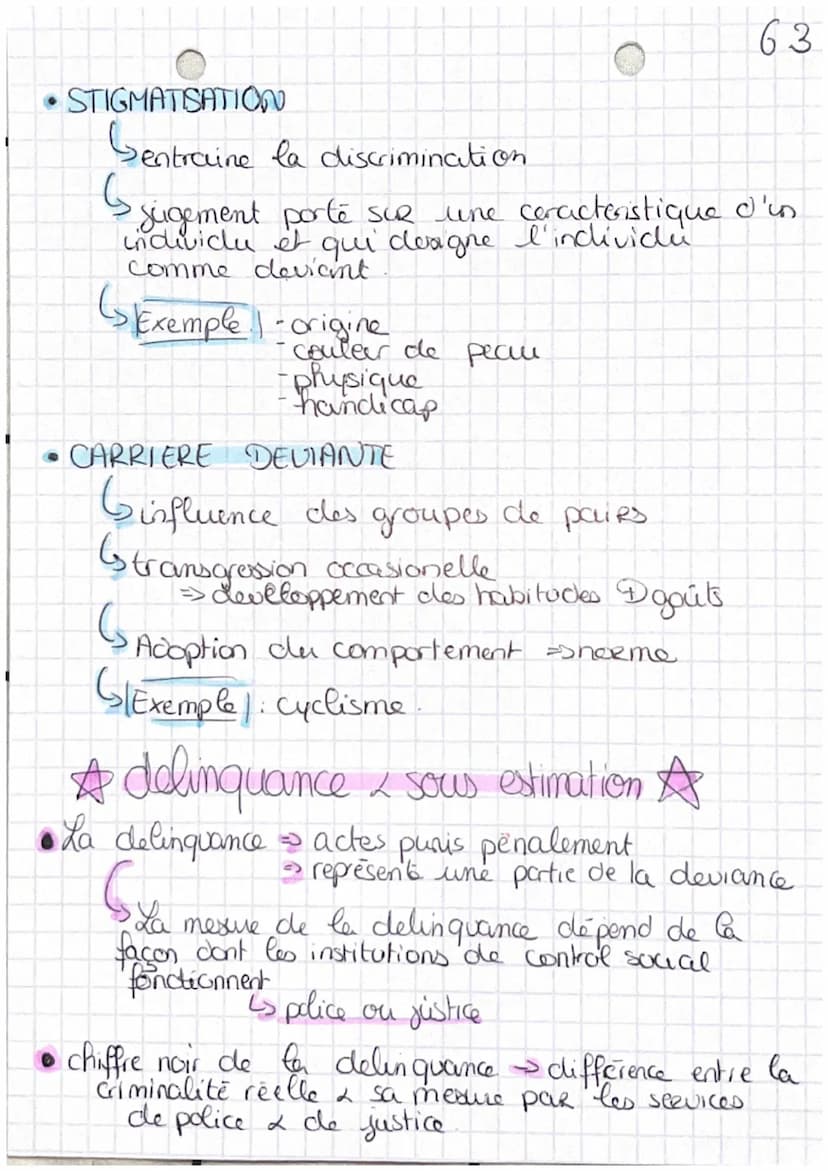 63
• STIGMATISATION
↳ entraine la discrimination
↳ jugement porté sur une caracteristique d'un
individu et qui designe l'individu
comme deviant.
↳ Exemple - origine
- couleur de peau
- physique
- handicap
• CARRIERE DEVIANTE
↳ influence des groupes de pairs
↳ transgression occasionelle
⇒ developpement des habitudes & goûts
↳ Adoption du comportement ⇒ norme
↳ Exemple : cyclisme.
☆ delinquance & sous estimation ☆
• La delinquance ⇒ actes punis pénalement
⇒ représente une partie de la deviance
↳ La mesure de la delinquance dépend de la
façon dont les institutions de control social
fonctionnent
↳ police ou justice
• chiffre noir de la delinquance → différence entre la
criminalité réelle & sa mesure par les services
de police & de justice